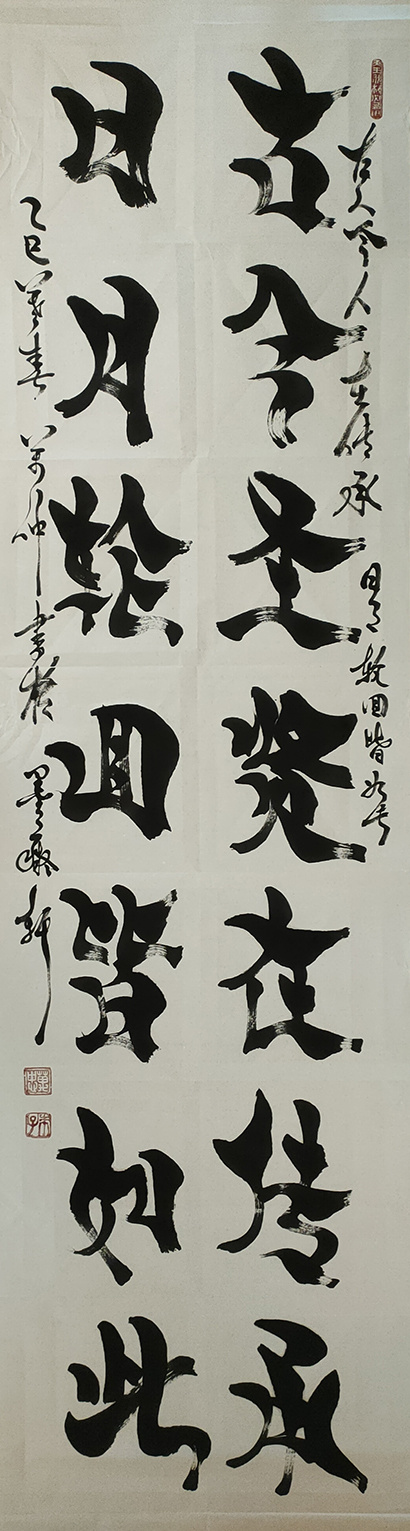 古人今人在传承
日月轮回皆如
古今圣贤在传承
日月轮回皆如此
乙巳春万仲书于墨轩